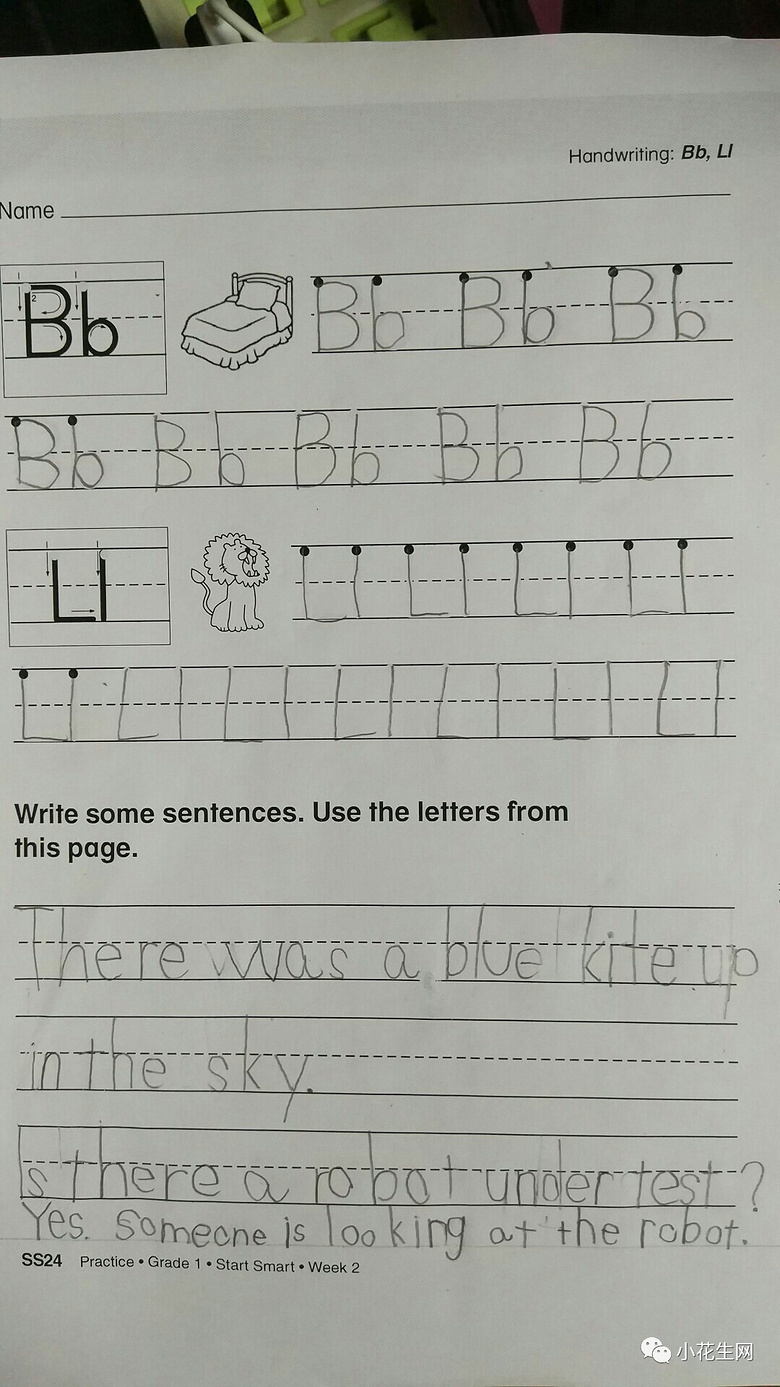 Handwriting: Bb, Ll
Name
Bb Bb Bb Bb
Bb Bb Bb Bb Bb
Ll Ll Ll Ll Ll
Ll Ll Ll Ll Ll Ll Ll
Write some sentences. Use the letters from
this page.
There was a blue kite up
in the sky.
Is there a robot under test?
Yes. someone is looking at the robot.
SS24 Practice • Grade 1 • Start Smart • Week 2
小花生网